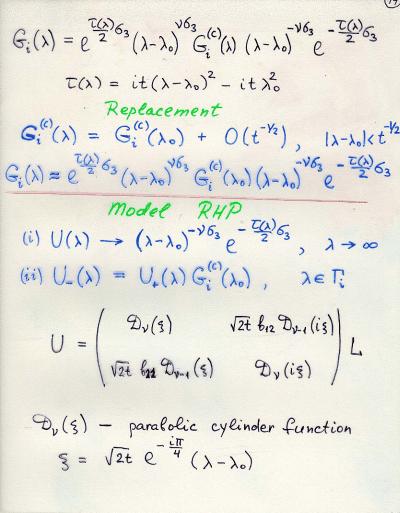 G_i(λ) = e^{τ(λ)/2 σ₃} (λ-λ₀)^{νσ₃} G_i^{(c)}(λ) (λ-λ₀)^{-νσ₃} e^{-τ(λ)/2 σ₃}
τ(λ) = it(λ-λ₀)² - itλ₀²
Replacement
G_i^{(c)}(λ) = G_i^{(c)}(λ₀) + O(t^{-1/2}), |λ-λ₀| < t^{-1/2}
G_i(λ) ≈ e^{τ(λ)/2 σ₃} (λ-λ₀)^{νσ₃} G_i^{(c)}(λ₀) (λ-λ₀)^{-νσ₃} e^{-τ(λ)/2 σ₃}
Model RHP
(i) U(λ) → (λ-λ₀)^{-νσ₃} e^{-τ(λ)/2 σ₃}, λ → ∞
(ii) U₋(λ) = U₊(λ) G_i^{(c)}(λ₀), λ ∈ Γ_i
D_ν(ξ) √2t b₁₂ D_{ν-1}(iξ)
U = ( ) L
√2t D_{ν-1}(ξ) D_ν(iξ)
D_ν(ξ) — parabolic cylinder function
ξ = √2t e^{-iπ/4} (λ-λ₀)